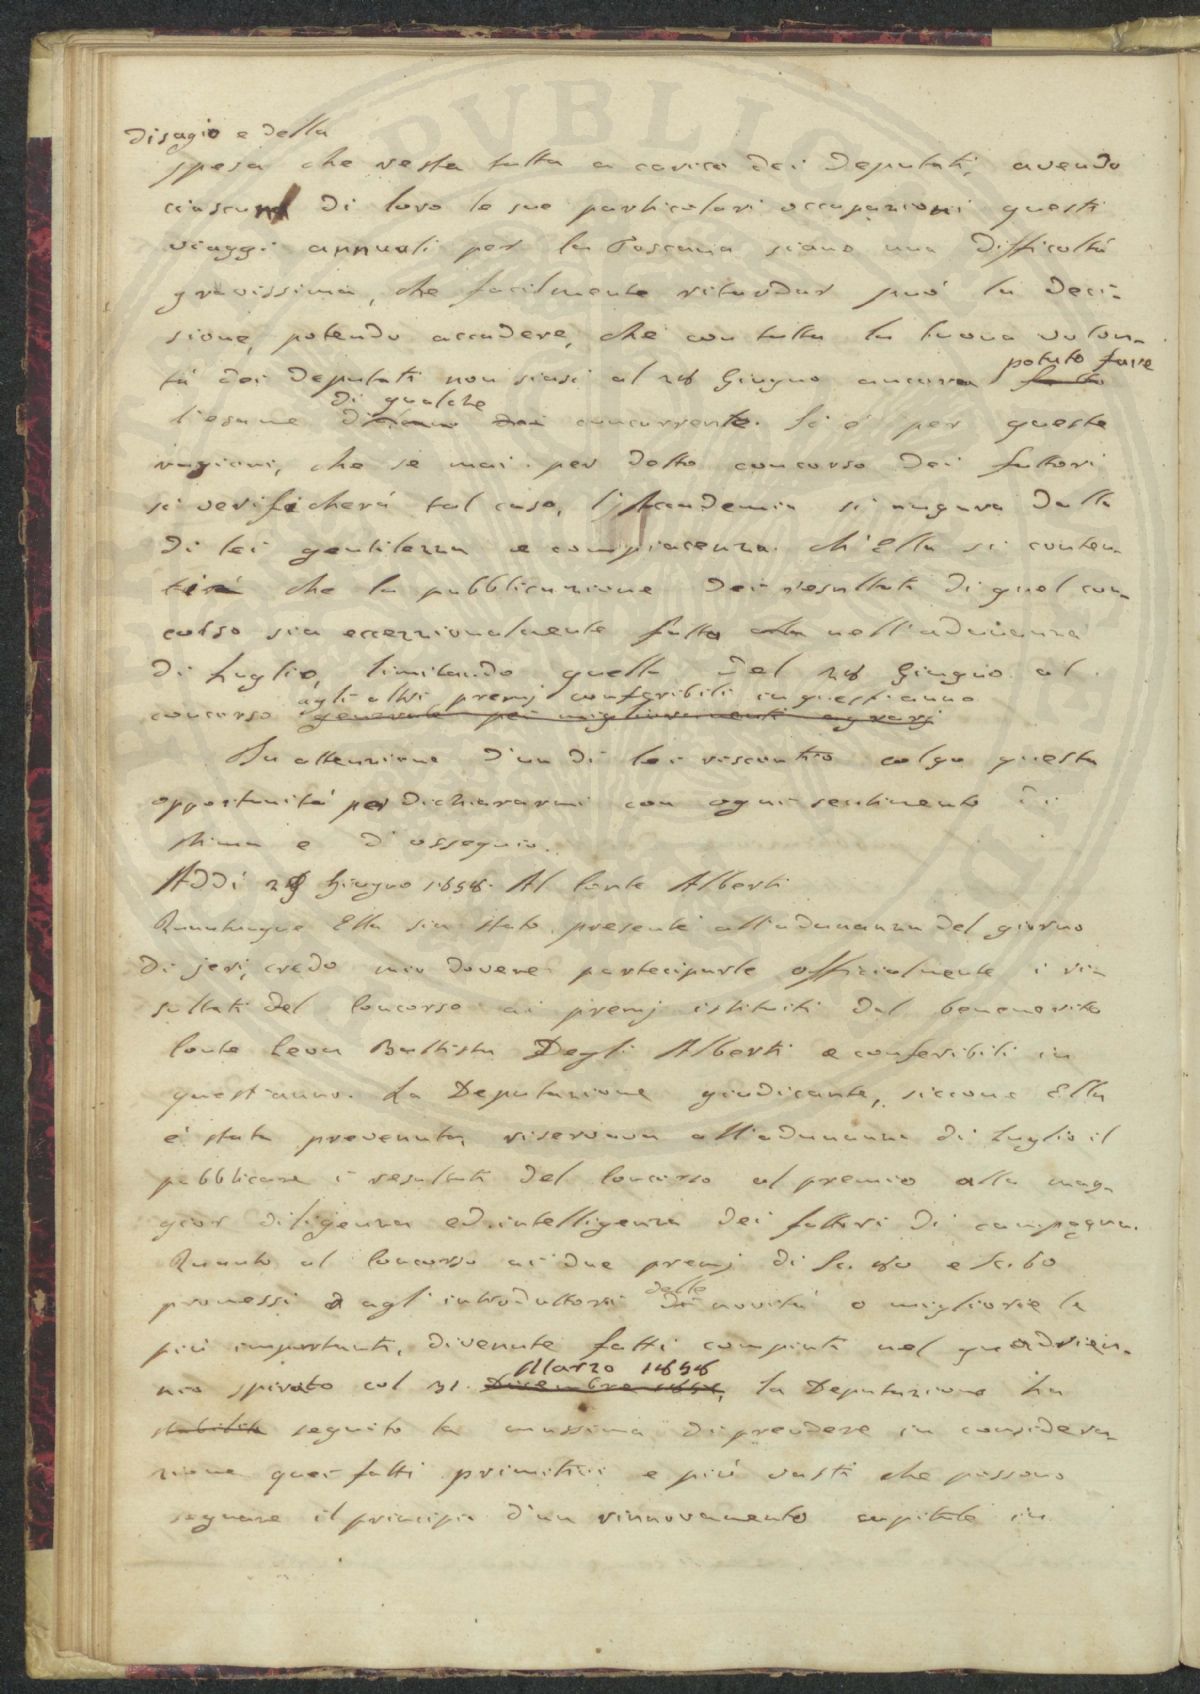 disagio e della
spesa che resta tutta a carico dei Deputati, avendo
ciascuno di loro le sue particolari occupazioni questi
viaggi annuali per la Toscana siano una difficoltà
gravissima, che facilmente ritardar può la deci-
sione, potendo accadere, che con tutta la buona volon-
tà dei Deputati non siasi al 28 Giugno ancora potuto fare
di qualche
l'esame concorrente. Si è per queste
ragioni, che se mai per detto concorso dei fattori
si verificherà tal caso, l'Accademia si augura dalla
di lei gentilezza e compiacenza ch'Ella si conten-
terà che la pubblicazione dei resultati di quel con-
corso sia eccezzionalmente fatta nell'adunanza
di Luglio, limitando quella del 28 Giugno al
agli altri premj conferibili in quest'anno
concorso generale pei miglioramenti agrarj
In attenzione d'un di lei riscontro colgo questa
opportunità per dichiararmi con ogni sentimento di
stima e d'ossequio.
Addì 28 Giugno 1858. Al Conte Alberti
Quantunque Ella sia stato presente all'adunanza del giorno
di jeri, credo mio dovere parteciparle officialmente i ri-
sultati del Concorso ai premj istituiti dal benemerito
Conte Leon Battista Degli Alberti e conferibili in
quest'anno. La Deputazione giudicante, siccome Ella
è stata prevenuta, riservava all'adunanza di Luglio il
pubblicare i resultati del Concorso al premio alla mag-
gior diligenza ed intelligenza dei fattori di campagna.
Quanto al Concorso ai due premj di Sc. 80 e Sc. 60
promessi agl'introduttori delle novità o migliorie le
più importanti, divenute fatti compiuti nel quadrien-
Marzo 1858
nio spirato col 31. Dicembre, la Deputazione ha
stabilito seguito la massima di prendere in considera-
zione quei fatti primitivi e più vasti che possono
segnare il principio d'un rinnovamento capitale in